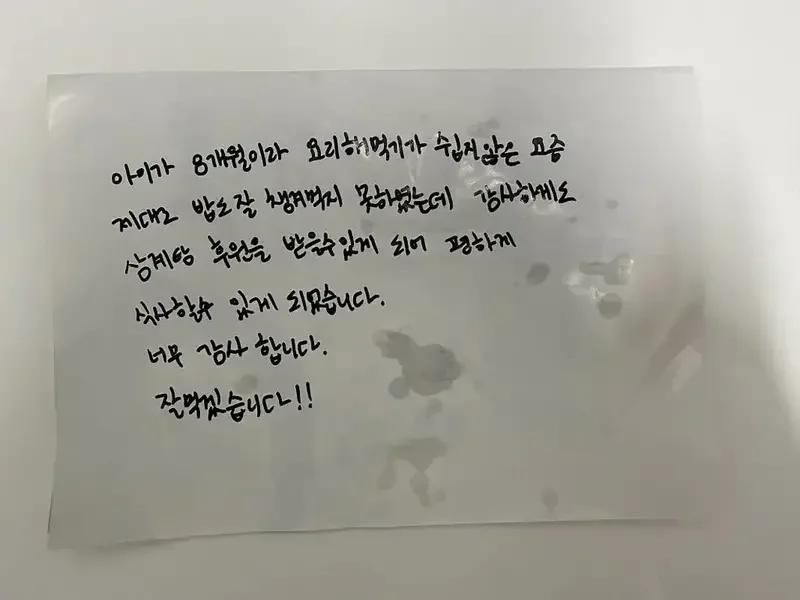 아이가 8개월이라 요리해먹기가 쉽지않은 요즘
제대로 밥도잘 챙겨먹지 못하였는데 감사하게도
삼계탕 후원을 받을수있게 되어 편하게
식사할수 있게 되었습니다.
너무 감사 합니다.
잘먹겠습니다!!